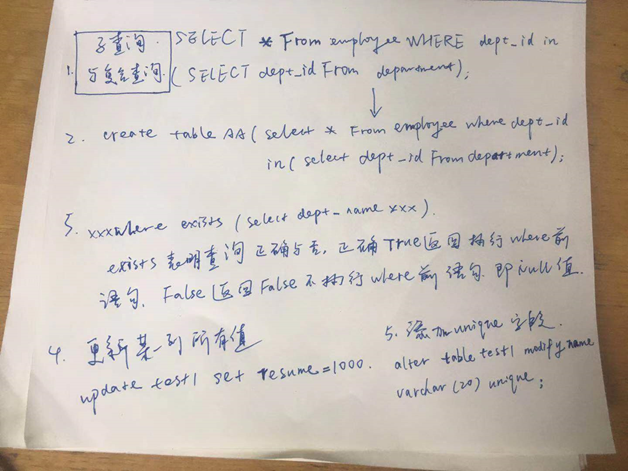 子查询. SELECT * From employee WHERE dept_id in
1. 与复合查询. (SELECT dept_id From department);
2. create table AA(select * From employee where dept_id
in(select dept_id From department);
3. xxxwhere exists (select dept_name xxx).
exists 表明查询正确与否,正确True返回执行where前
语句. False返回False不执行where前语句.即Null值.
4. 更新某一列所有值
update test1 set resume=1000.
5. 添加unique字段.
alter table test1 modify name
varchar(20) unique;